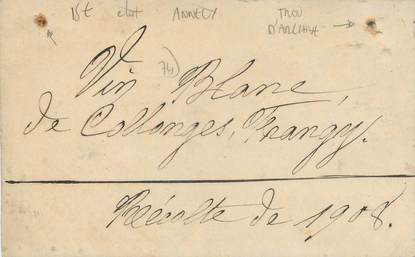 15€ état ANNECY TROU
D'ARCHIVE
74)
Vin Blanc,
de Collonges, Frangy.
Récolte de 1908.